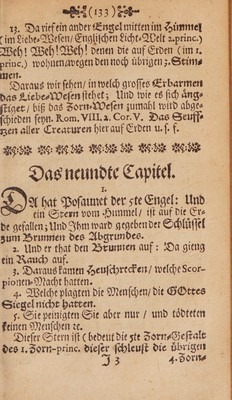 (133)
13. Da rief ein ander Engel mitten im Himmel
(im Liebe-Wesen/ Englischen Licht-Welt 2. princ.)
Weh! Weh! Weh! denen die auf Erden (im 1.
princ.) wohnen wegen den noch übrigen 3. Stim-
men.
Daraus wir sehen/ in welch grosses Erbarmen
das Liebe-Wesen stehet; Und wie es sich äng-
stiget/ biß das Zorn-Wesen zumahl wird abge-
schieden seyn. Rom. VIII. 2. Cor. V. Das Seuff-
tzen aller Creaturen hier auf Erden u. s. f.
Das neundte Capitel.
1.
DA hat Posaunet der 5te Engel: Und
ein Stern vom Himmel/ ist auf die Er-
de gefallen; Und Ihm ward gegeben der Schlüssel
zum Brunnen des Abgrundes.
2. Und er that den Brunnen auf: Da gieng
ein Rauch auf.
3. Daraus kamen Heuschrecken/ welche Scor-
pionen-Macht hatten.
4. Welche plagten die Menschen/ die GOttes
Siegel nicht hatten.
5. Sie peinigten Sie aber nur/ und tödteten
keinen Menschen ꝛc.
Dieser Stern ist (bedeut die 5te Zorn-Gestalt
des 1. Zorn-princ. dieser schleust die übrigen
J 3 4. Zorn-